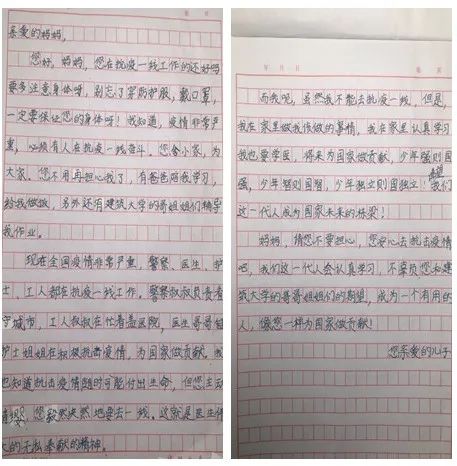 亲爱的妈妈，
您好，妈妈，您在抗疫一线工作的还好吗
要多注意身体呀，别忘了穿防护服，戴口罩，
一定要保证您的身体呀！我知道，疫情非常严
重，必须有人在抗疫一线奋斗。您舍小家，为
大家，您不用再担心我了，有爸爸陪我学习，
给我做饭，另外还有建筑大学的哥姐姐们辅导
我作业。
现在全国疫情非常严重，警察、医生、护
士、工人都在抗疫一线工作，警察叔叔负责看
守城市，工人叔叔在忙着盖医院，医生哥哥和
护士姐姐在积极抗击疫情，为国家做贡献，我
也知道抗击疫情随时可能付出生命，但您主动
请缨，您毅然决然地要去一线。这就是医生伟
大的无私奉献的精神。
年 月 日
而我呢，虽然我不能去抗疫一线，但是，
我在家里做我该做的事情，我在家里认真学习
我也要学医，将来为国家做贡献，少年强则国
强，少年智则国智，少年独立则国独立！希望我们
这一代人成为国家未来的栋梁！
妈妈，请您不要担心，您安心去抗击疫情
吧，我们这一代人会认真学习，不辜负您和建
筑大学的哥哥姐姐们的期望，成为一个有用的
人，像您一样为国家做贡献！
您亲爱的儿子